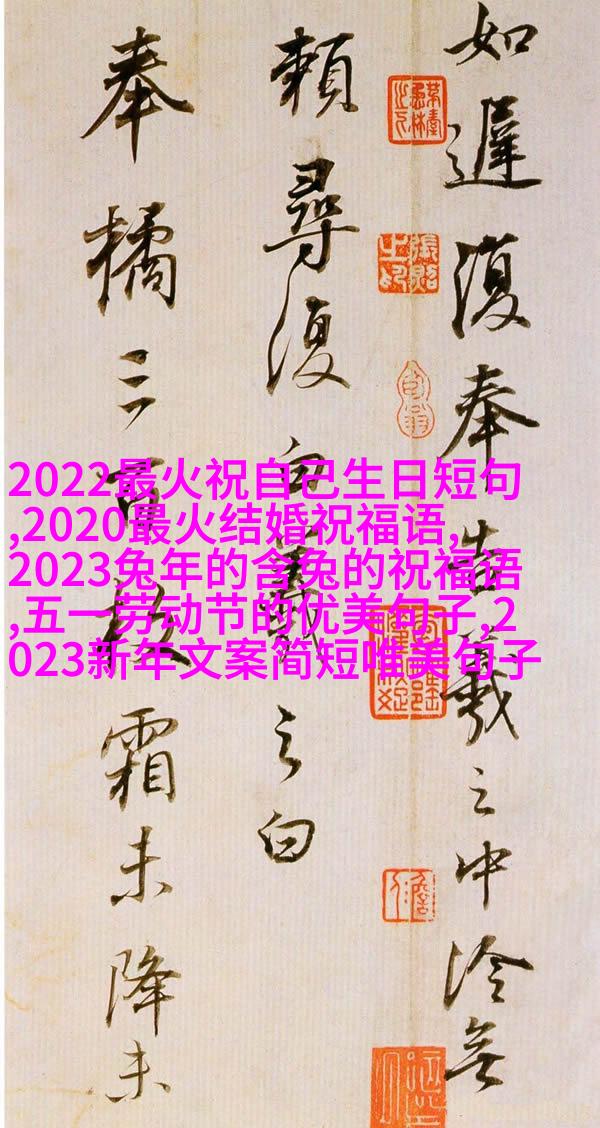 如遲復奉告羲之中冷無
賴尋復白羲之白
奉橘三百枚霜未降未
2022最火祝自己生日短句
,2020最火结婚祝福语,
2023兔年的含兔的祝福语
,五一劳动节的优美句子,2
023新年文案简短唯美句子